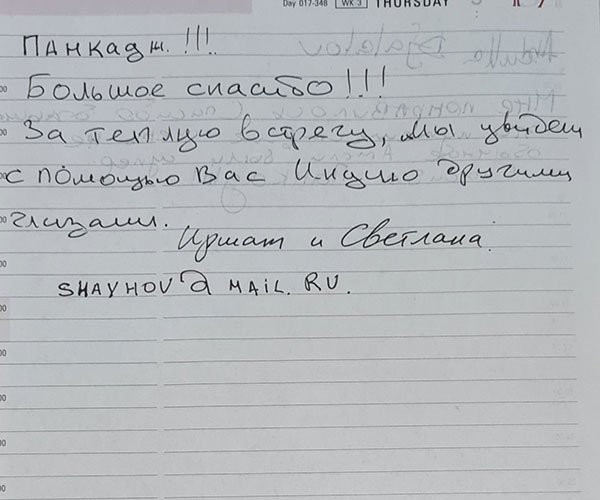 Day 017-348 WK 3 THURSDAY
Панкадж. !!!
Большое спасибо!!!
За теплую встречу, мы увидем
с помощью Вас Индию другими
глазами.
Иршат и Светлана
SHAYHOV@MAIL.RU.